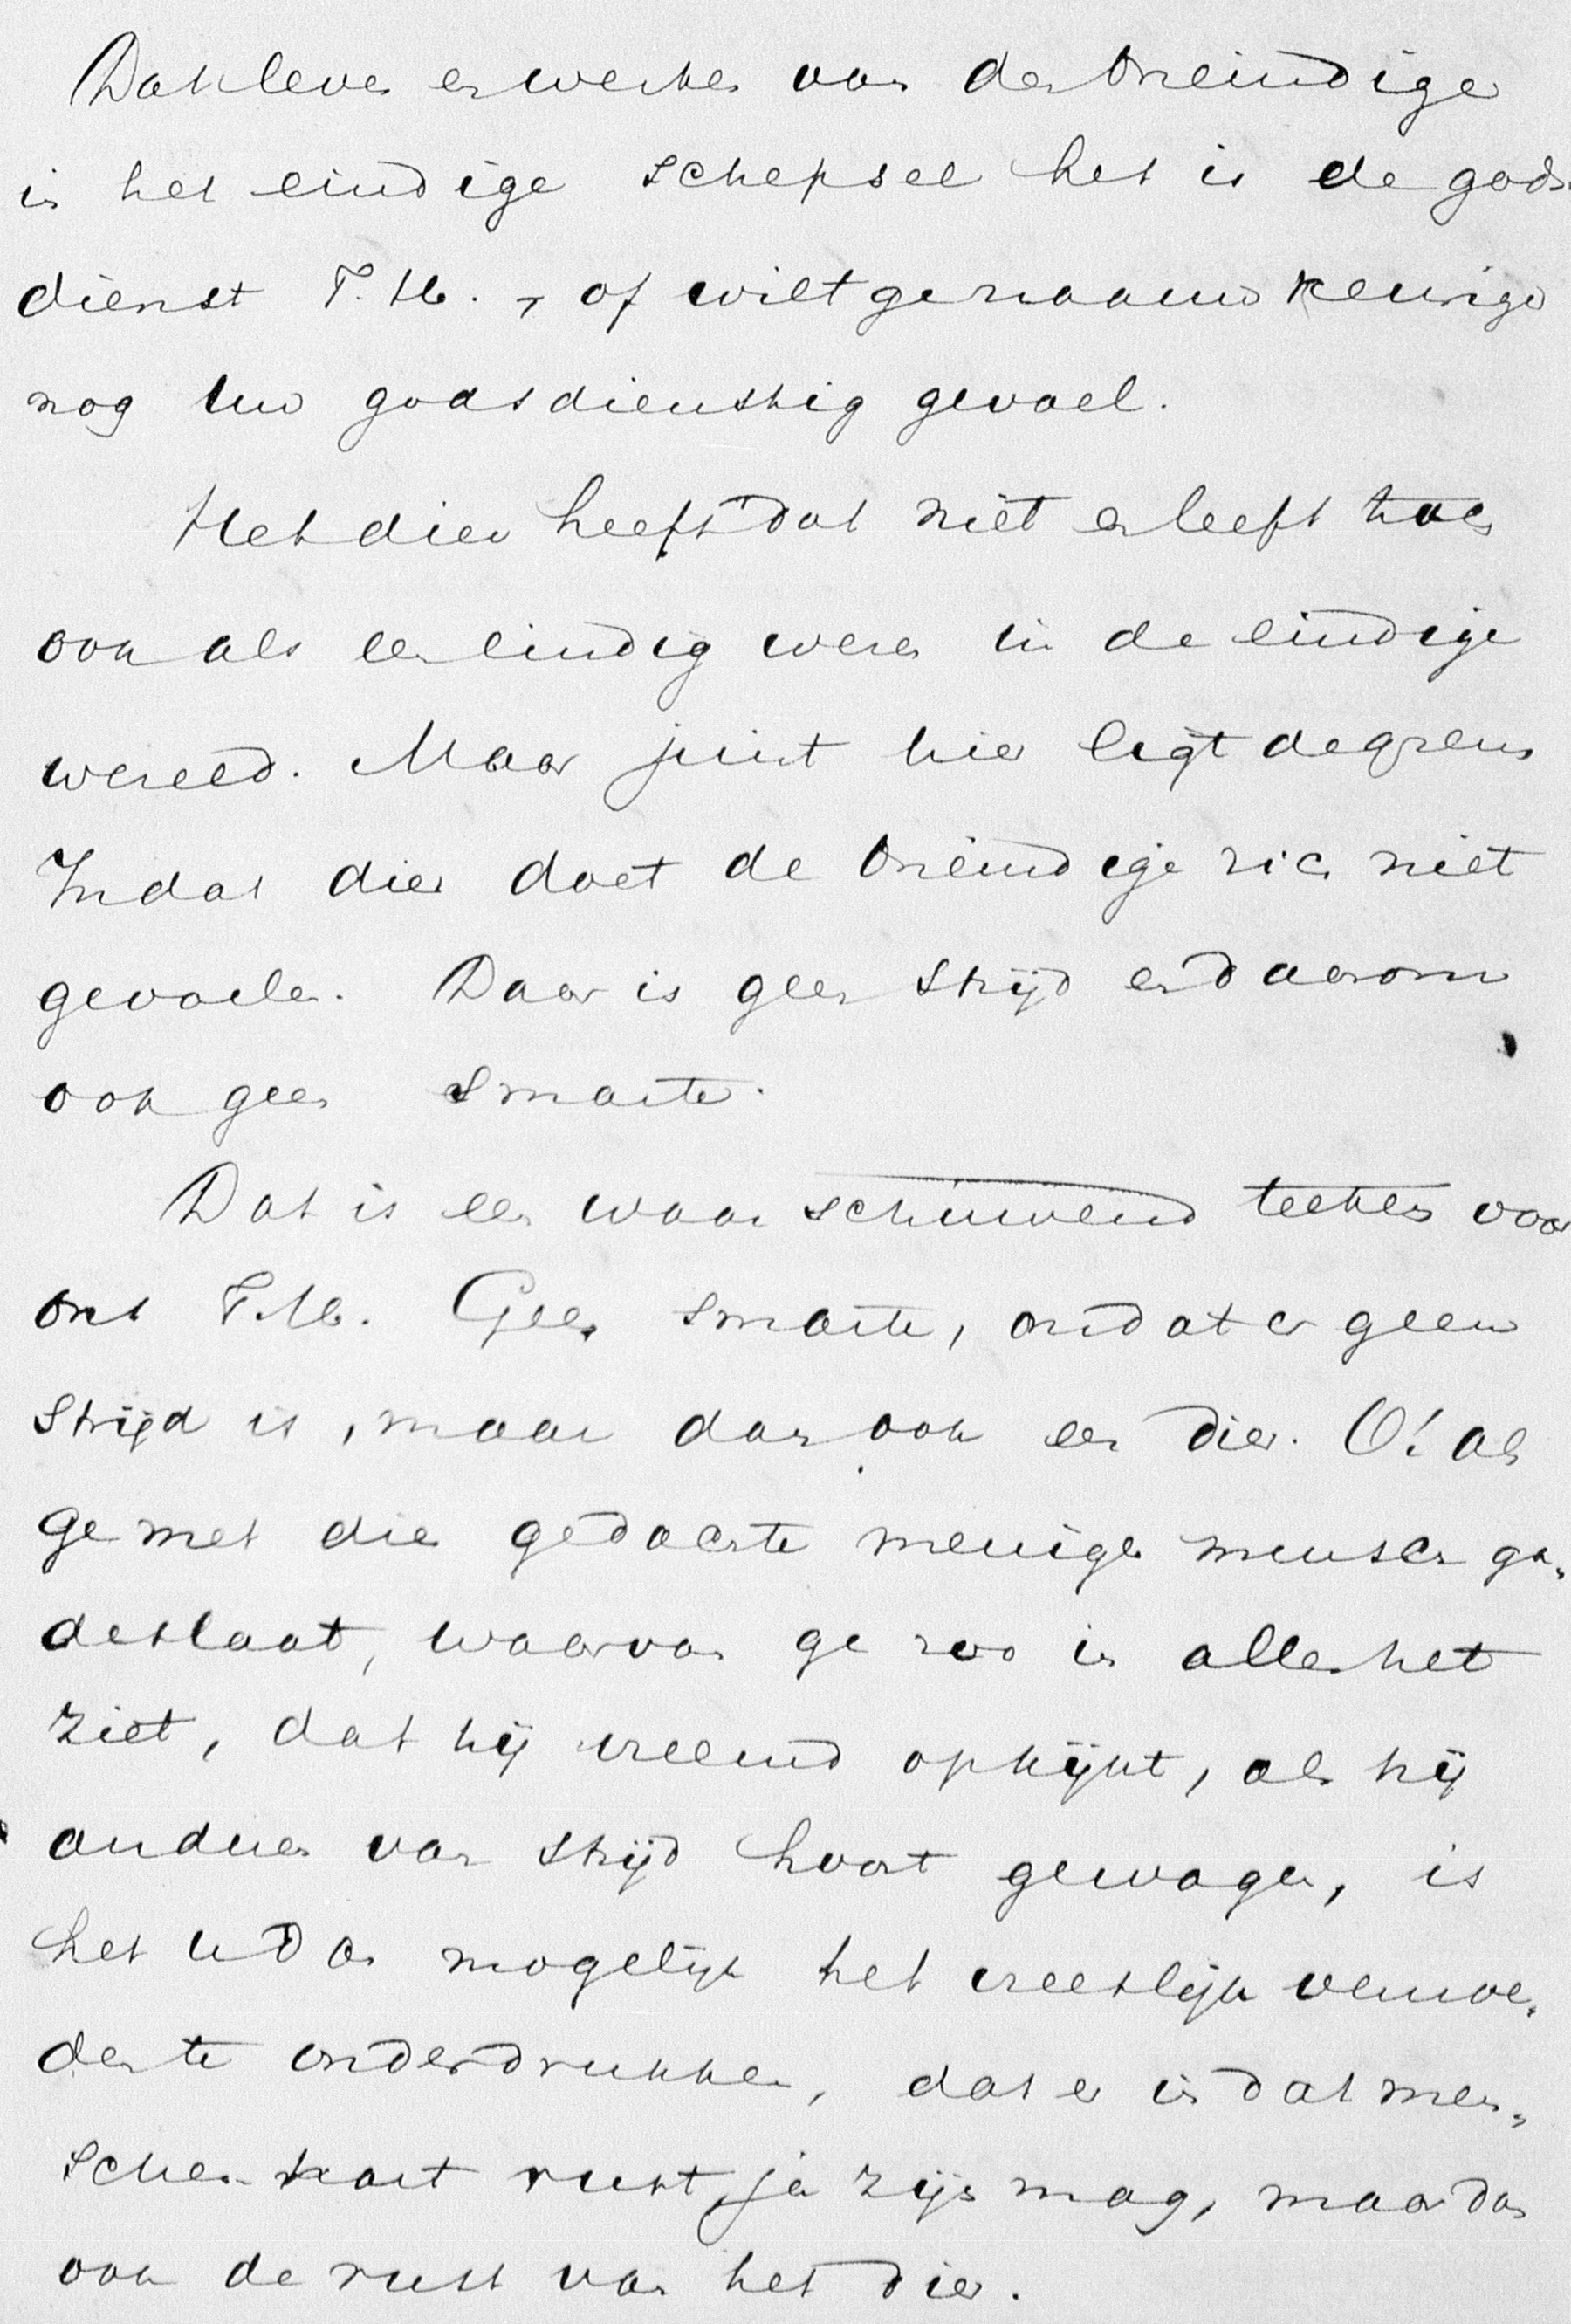 Dat leven en werken van den Oneindige
in het eindige schepsel het is de gods-
dienst T. H., of wilt ge naauwkeuriger
nog uw godsdienstig gevoel.
Het dier heeft dat niet en leeft toch
ook als een eindig wezen in de eindige
wereld. Maar juist hier ligt de grens
In dat dier doet de Oneindige zich niet
gevoelen. Daar is geen strijd en daarom
ook geen smarte.
Dat is een waarschuwend teeken voor
ons T. H. Geen smarte, omdat er geen
strijd is, maar dan ook een dier. O! als
ge met die gedachte menigen mensch ga-
deslaat, waarvan ge zoo in alles het
ziet, dat hij vreemd opkijkt, als hij
anderen van strijd hoort gewagen, is
het u dan mogelijk het vreeslijk vermoe-
den te onderdrukken, dat er in dat men-
schenhart rust, ja zijn mag, maar dan
ook de rust van het dier.